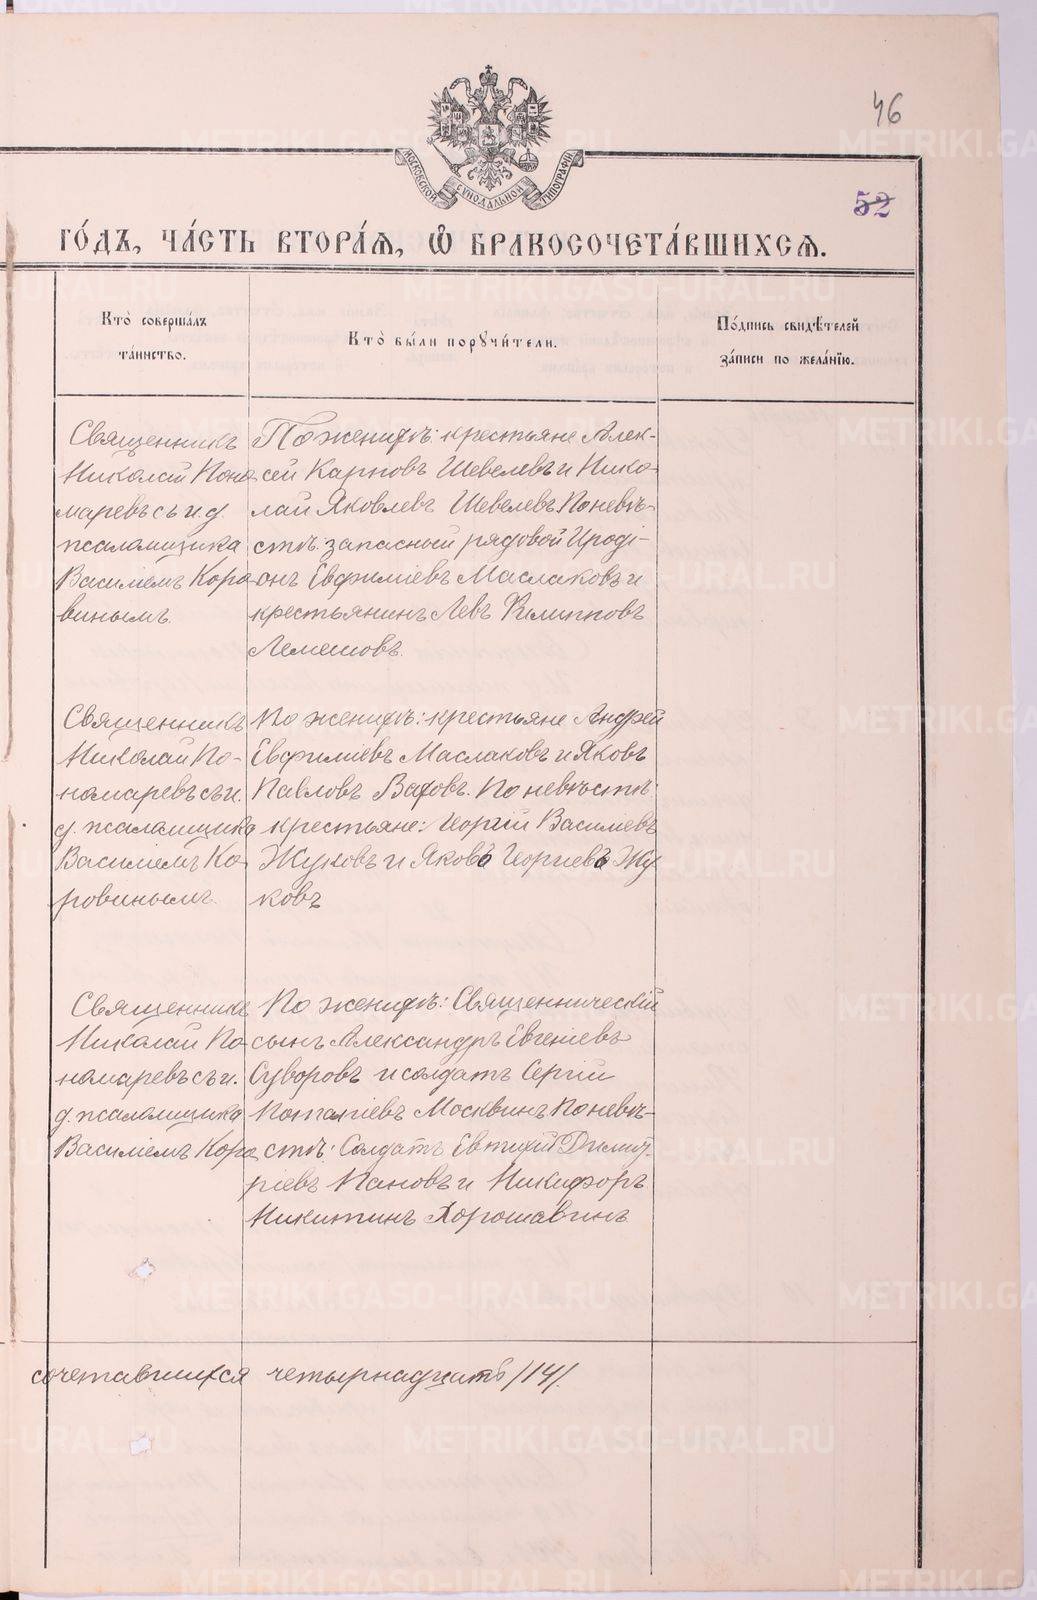 46
МОСКОВСКОЙ СѴНОДАЛЬНОЙ ТИПОГРАФІИ
52
ГО́ДЪ, ЧА́СТЬ ВТОРА́Ѧ, Ѽ БРАКОСОЧЕТА́ВШИХСѦ.
Кто̀ соверша́лъ
та́инство.
Кто̀ бы́ли порꙋчи́тели.
По́дпись свидѣ́телей
за́писи по жела́нїю.
Священникъ
Николай Поно
маревъ съ и. д.
псаломщика
Василіемъ Коро
винымъ.
По женихѣ: крестьяне Алек-
сей Карповъ Шевелевъ и Нико-
лай Яковлевъ Шевелевъ. По невѣ-
стѣ: запасной рядовой Ироді-
онъ Евфиміевъ Маслаковъ и
крестьянинъ Левъ Филипповъ
Лемешовъ.
Священникъ
Николай По-
номаревъ съ и.
д. псаломщика
Василіемъ Ко-
ровинымъ.
По женихѣ: крестьяне Андрей
Евфиміевъ Маслаковъ и Яковъ
Павловъ Ваховъ. По невѣстѣ:
крестьяне: Георгій Василіевъ
Жуковъ и Яковъ Георгіевъ Жу
ковъ
Священникъ
Николай По-
номаревъ съ и.
д. псаломщика
Василіемъ Коро
По женихѣ: Священническій
сынъ Александръ Евгеніевъ
Суворовъ и солдатъ Сергій
Потапіевъ Москвинъ. По невѣ-
стѣ: Солдатъ Евтихій Димит-
ріевъ Пановъ и Никифоръ
Никитинъ Хорошавинъ
сочетавшихся четырнадцать /14/.
METRIKI.GASO-URAL.RU